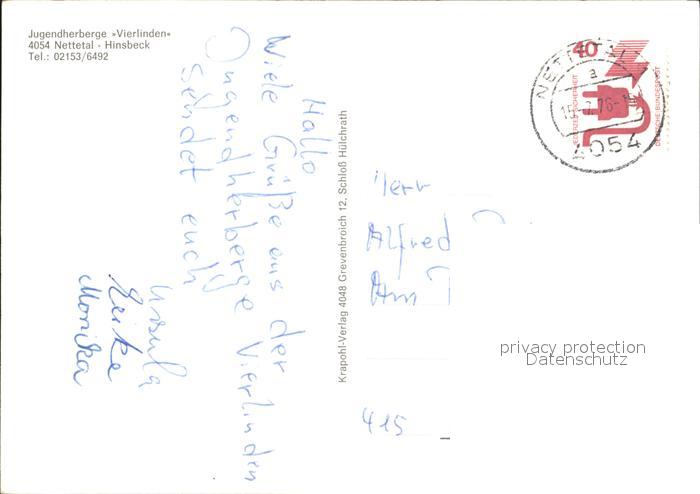 Jugendherberge »Vierlinden«
4054 Nettetal - Hinsbeck
Tel.: 02153/6492
Hallo
Wiele Grüße aus der
Jugendherberge Vierlinden
sendet euch
Ursula
Heike
Monika
Krapohl-Verlag 4048 Grevenbroich 12, Schloß Hülchrath
40
JEDERZEIT SICHERHEIT
DEUTSCHE BUNDESPOST
NETTETAL
a
4054
Herr
Alfred
415
privacy protection
Datenschutz